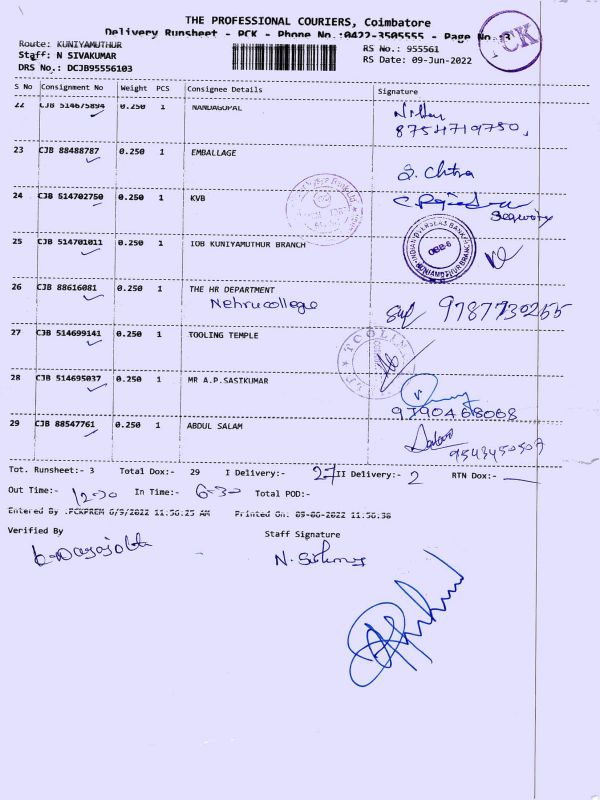 THE PROFESSIONAL COURIERS, Coimbatore
Delivery Runsheet - PCK - Phone No.:0422-3505555 - Page No.:3
PCK
Route: KUNIYAMUTHUR RS No.: 955561
Staff: N SIVAKUMAR RS Date: 09-Jun-2022
DRS No.: DCJB95556103
S No Consignment No Weight PCS Consignee Details Signature
22 CJB 514675894 0.250 1 NANDAGOPAL
8754719750,
23 CJB 88488787 0.250 1 EMBALLAGE
S. Chtra
24 CJB 514702750 0.250 1 KVB
25 CJB 514701011 0.250 1 IOB KUNIYAMUTHUR BRANCH
26 CJB 88616081 0.250 1 THE HR DEPARTMENT
Nehru college 9787730255
27 CJB 514699141 0.250 1 TOOLING TEMPLE
28 CJB 514695037 0.250 1 MR A.P.SASIKUMAR
9790468068
29 CJB 88547761 0.250 1 ABDUL SALAM
9543450507
Tot. Runsheet:- 3 Total Dox:- 29 I Delivery:- 27 II Delivery:- 2 RTN Dox:-
Out Time:- 12-30 In Time:- 6-30 Total POD:-
Entered By :PCKPREM 6/9/2022 11:56:25 AM Printed On: 09-06-2022 11:56:38
Verified By Staff Signature